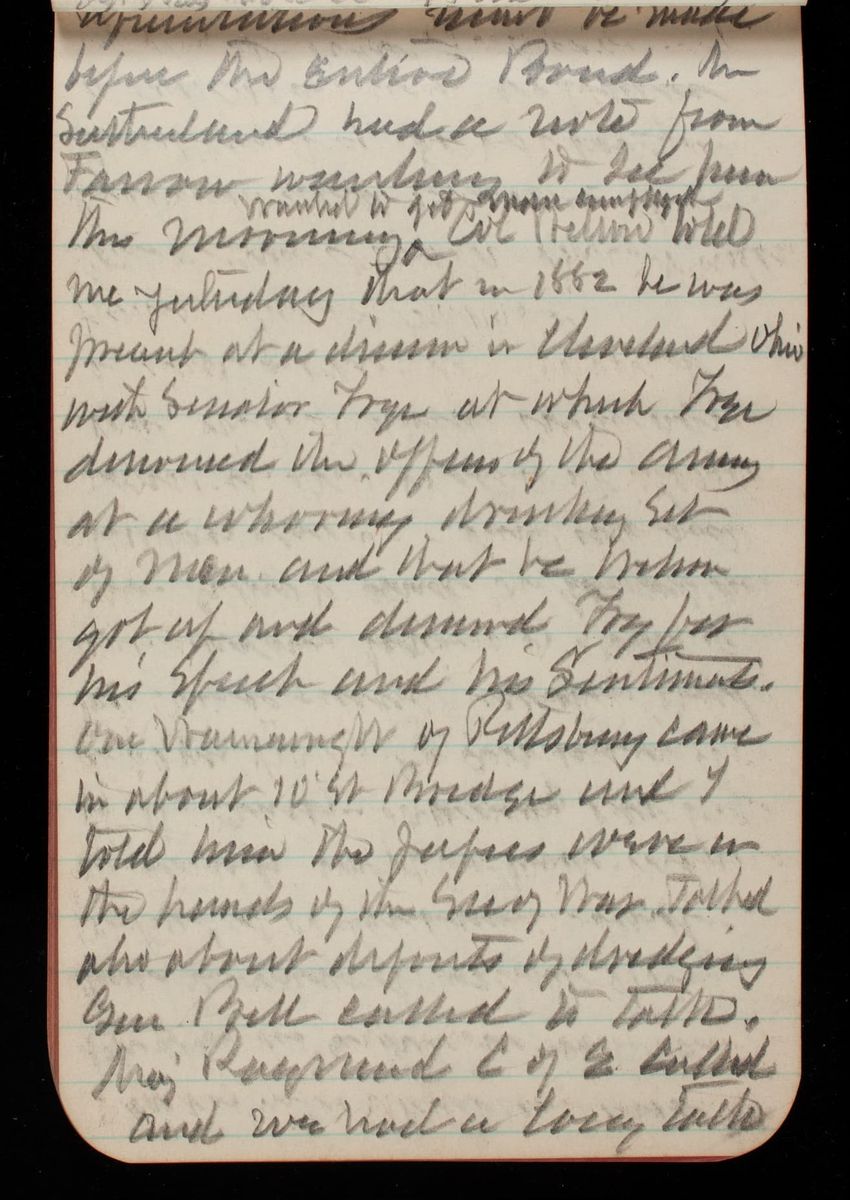 must be made
before the Entire Board. Mr
Sutherland had a note from
Farrow wanting to see him
wanted to get
this morning Col Wilson told
me yesterday that in 1882 he was
present at a dinner in Cleveland Ohio
with Senator Frye at which Frye
denounced the officers of the Army
as a whoring drinking set
of men and that he Wilson
got up and denounced Frye for
his speech and his Sentiments.
One Wainwright of Pittsburg came
in about 10th St Bridge and I
told him the papers were in
the hands of the Sec of War. Talked
also about deposits of dredging
Gen Bell called to talk.
Maj Raymond C of E called
and we had a long talk